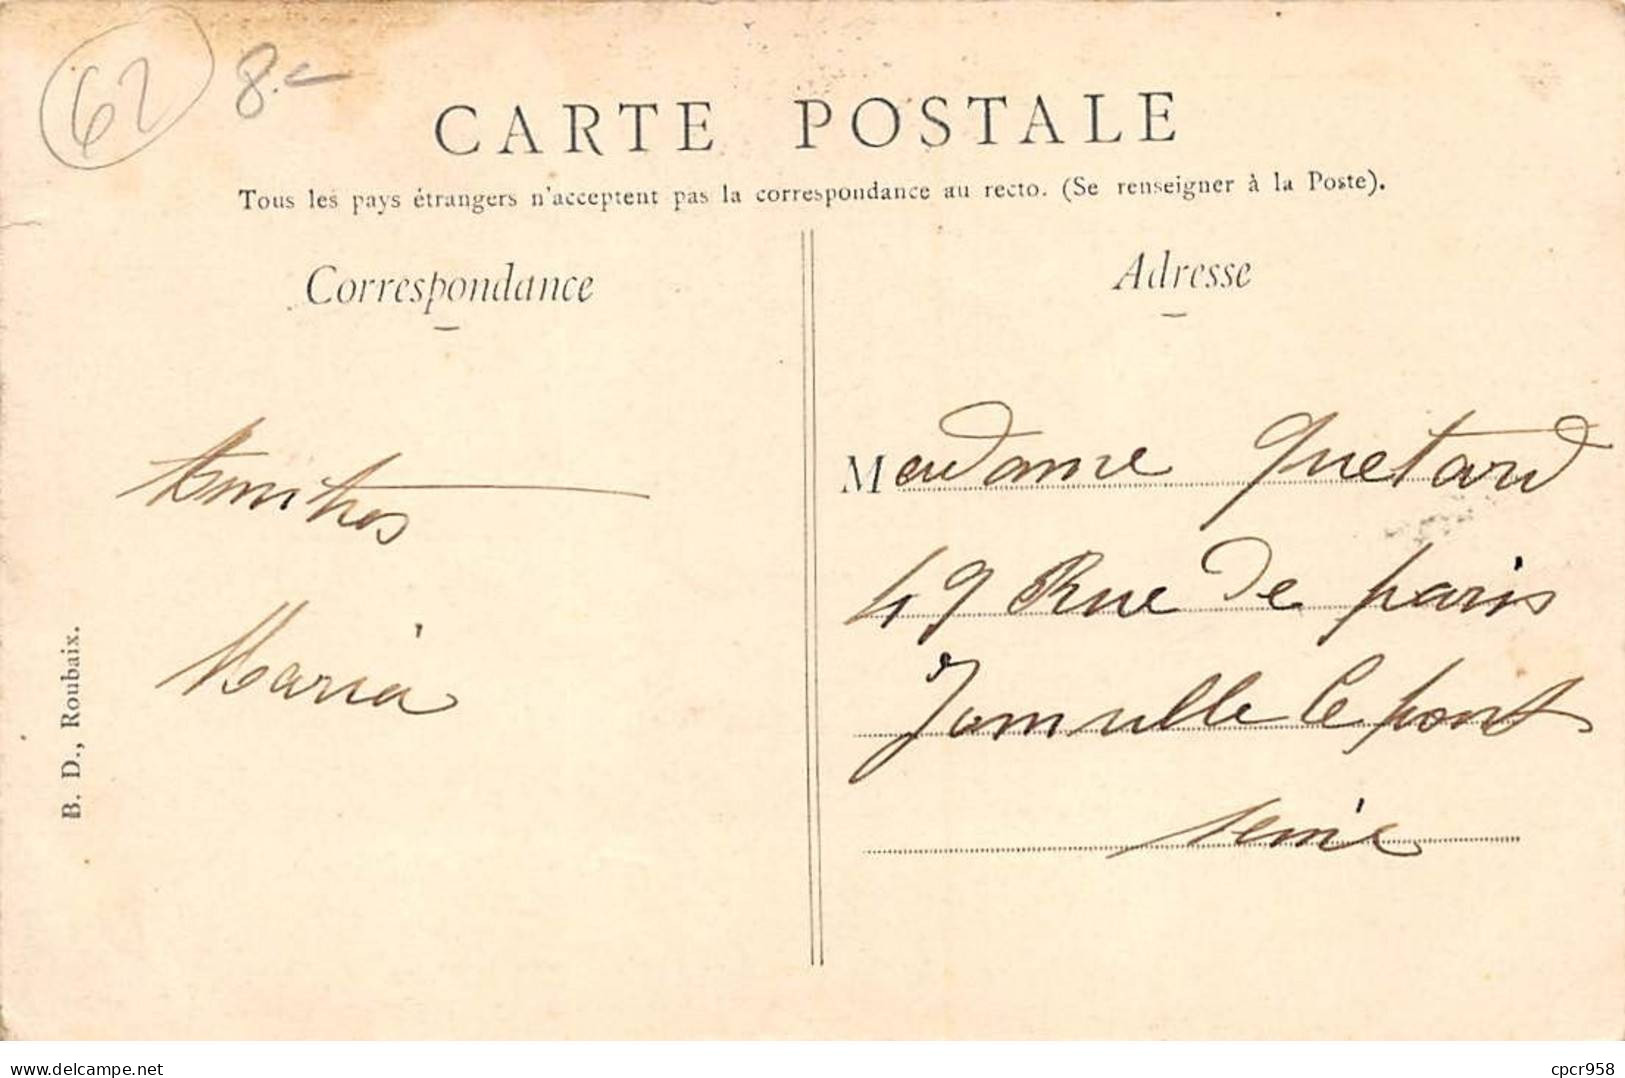 62 8.-
CARTE POSTALE
Tous les pays étrangers n'acceptent pas la correspondance au recto. (Se renseigner à la Poste).
Correspondance
Adresse
Amitiés
Maria
Madame Quetard
49 Rue de paris
Joinville le pont
Seine
B. D., Roubaix.
www.delcampe.net
cpcr958